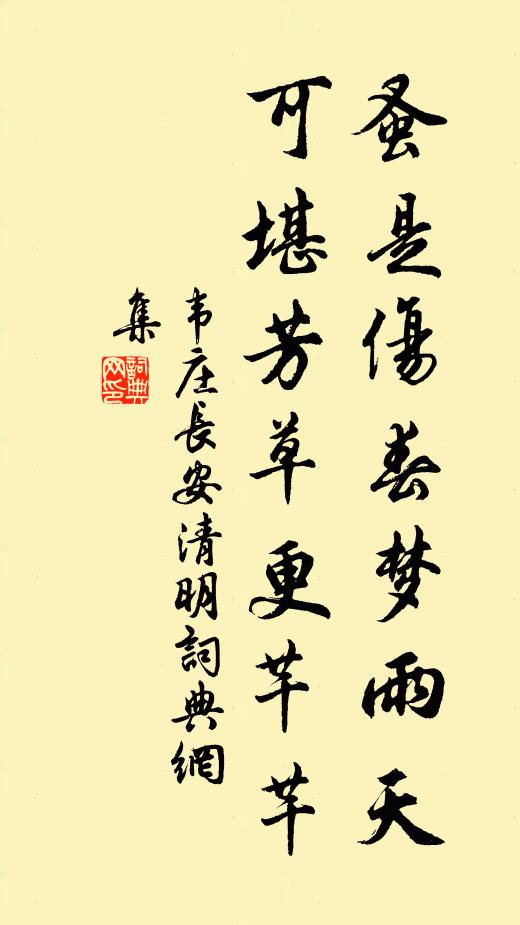 蚤是傷春梦雨天
可堪芳草更芊芊
韦庄長安清明詞典網
集
詞典
网印